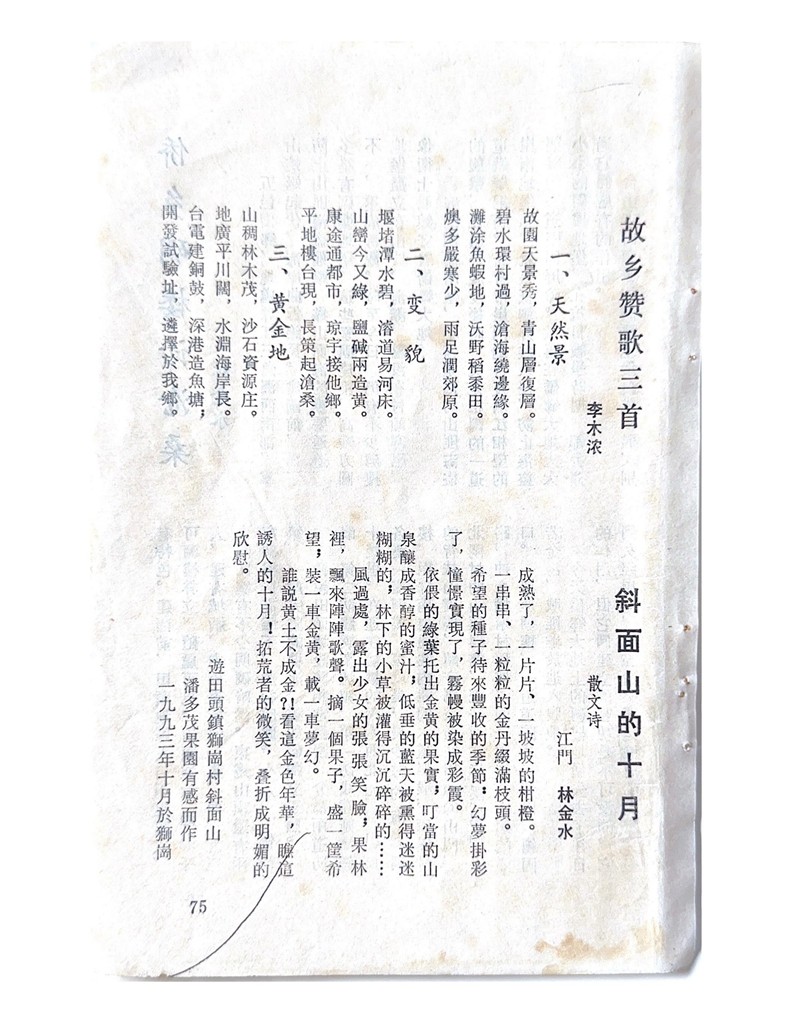 故乡赞歌三首
李木浓
一、天然景
故園天景秀，青山層復層。
碧水環村過，滄海繞邊緣。
灘涂魚蝦地，沃野稻黍田。
燠多嚴寒少，雨足潤郊原。
二、变貌
堰堵潭水碧，濬道易河床。
山巒今又綠，鹽碱兩造黄。
康途通都市，琼宇接他鄉。
平地樓台現，長策起滄桑。
三、黄金地
山稠林木茂，沙石資源庄。
地廣平川闊，水淵海岸長。
台電建銅鼓，深港造魚塘；
開發試驗址，遴擇於我鄉。
斜面山的十月
散文诗
江門 林金水
成熟了，一片片、一坡坡的柑橙。
一串串、一粒粒的金丹綴滿枝頭。
希望的種子待來豐收的季節：幻夢掛彩
了，憧憬實現了，霧幔被染成彩霞。
依偎的綠葉托出金黄的果實；叮當的山
泉釀成香醇的蜜汁；低垂的藍天被熏得迷迷
糊糊的；林下的小草被灌得沉沉碎碎的……
風過處，露出少女的張張笑臉；果林
裡，飄來陣陣歌聲。摘一個果子，盛一筐希
望；裝一車金黄，載一車夢幻。
誰説黄土不成金？！看這金色年華，瞧這
誘人的十月！拓荒者的微笑，叠折成明媚的
欣慰。
遊田頭鎮獅崗村斜面山
潘多茂果園有感而作
一九九三年十月於獅崗
75